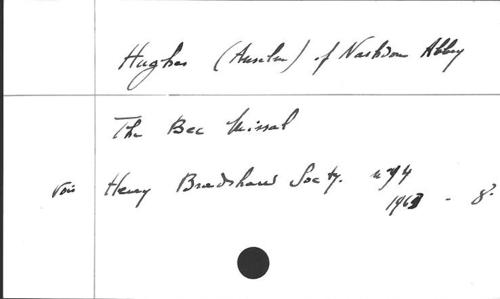 Hughes (Anselm) of Nashdom Abbey
The Bec Missal
Voir Henry Bradshaw Society. n° 94
1963 - 8°